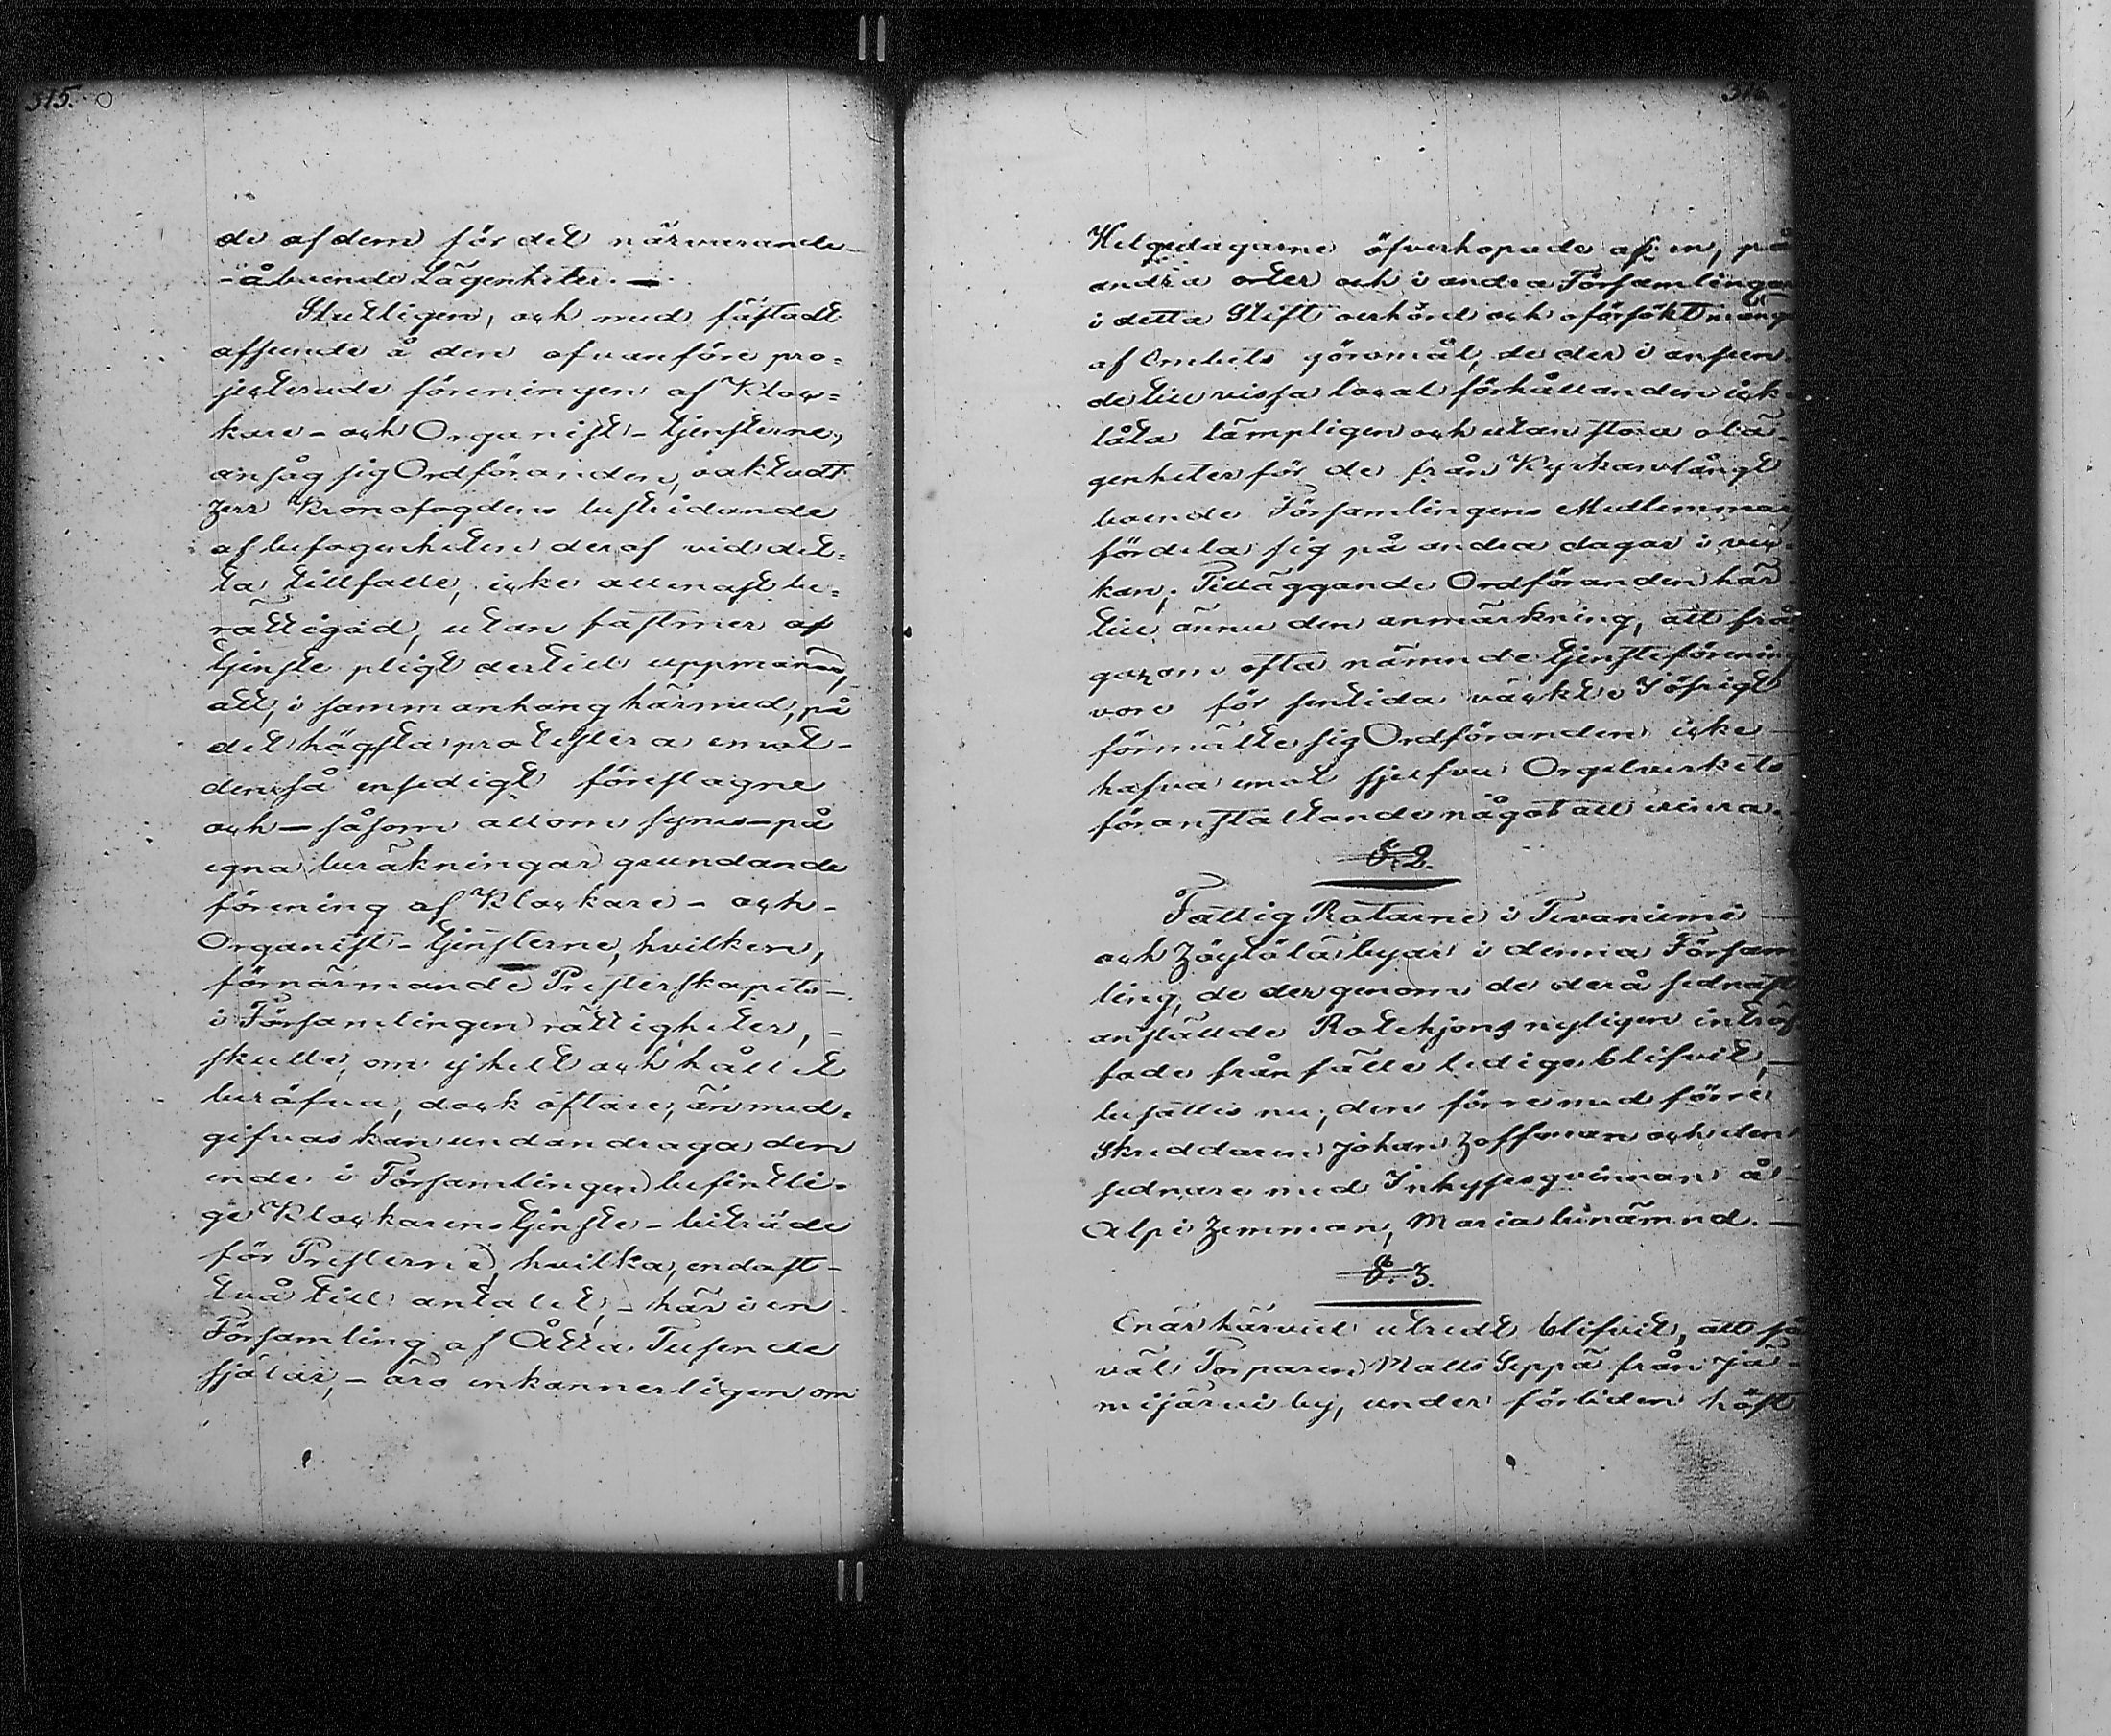 315.
de af dem för det närvarande
-åboende Lägenheter. —
Slutligen, och med fästadt
afseende å den ofvanföre pro=
jecterade föreningen af Kloc=
kare- och Organist-tjensterne,
ansåg sig Ordföranden, oaktadt
Herr Kronofogdens bestridande
af befogenheten deraf vid det=
ta tillfälle, icke allenast be=
rättigad, utan fastmer af
tjenste pligt dertill uppmanas,
att, i sammanhang härmed, på
det högsta protestera emot
den så ensidigt föreslagne
och — såsom allom synes — på
egna beräkningar grundande
förening af Klockare- och
Organist-tjensterne, hvilken,
förnärmande Presterskapets
i Församlingen rättigheter, -
skulle, om ej helt och hållet
beröfva, dock oftare, än med=
gifvas kan undandraga den
enda i Församlingen befintli=
ge Klockarens tjenste-biträde
för Presterne, hvilka, endast
två till antalet, - här i en
Församling af Åtta Tusende
själar, - äro enkannerligen om
316.
Helgedagarne öfverhopade af en, på
andra orter och i andra Församlingar
i detta Stift oerhörd och oförsökt mängd
af Embets göromål, de der i anseen-
de till vissa local förhållanden icke
låta lämpligen och utan stora olä-
genheter för de från Kyrkan långt
boende Församlingens Medlemmar,
fördela sig på andra dagar i vec-
kan; Tilläggande Ordföranden här-
till ännu den anmärkning, att frå-
gan om ofta nämnde tjensteförening
vore för sentida väckt. I öfrigt
förmälte sig Ordföranden icke
hafva emot sjelfva Orgelverkets
föranstaltande något att erinra.
§. 2.
Fattig Rotarne i Tevaniemi
och Höytölä byar i denna Försam
ling, de der genom de derå sednast
anställde Rotehjons nyligen inträf
fade frånfälle ledige blifvit, —
besattes nu, den förre med förre
Skreddaren Johan Hoffman och den
sednare med Inhysesqvinnan å
Alpi Hemman, Maria benämnd. —
§. 3.
Enär härvid utredt blifvit, att så
väl Torparen Matts Seppä från Jä-
mijärvi by, under förliden höst